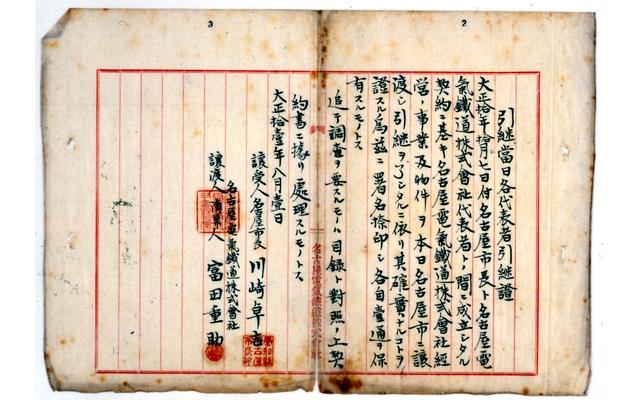 2
引継當日各代表者引継證
大正拾年拾月七日付名古屋市長ト名古屋電
氣鐵道株式會社代表者トノ間ニ成立シタル
契約ニ基キ名古屋電氣鐵道株式會社經
營ノ事業及物件ヲ本日名古屋市ニ讓
渡シ引継ヲ了シタルニ依リ其確實ナルコトヲ
證スル爲茲ニ署名捺印シ各自壹通ヲ保
有スルモノトス
名古屋電氣鐵道株式會社
3
追テ調査ヲ要スルモノハ目録ト對照ノ上契
約書ニ據リ處理スルモノトス
大正拾壹年八月壹日
讓受人名古屋市長 川崎卓吉
名古屋電氣鐵道株式會社
讓渡人 清算人 富田重助